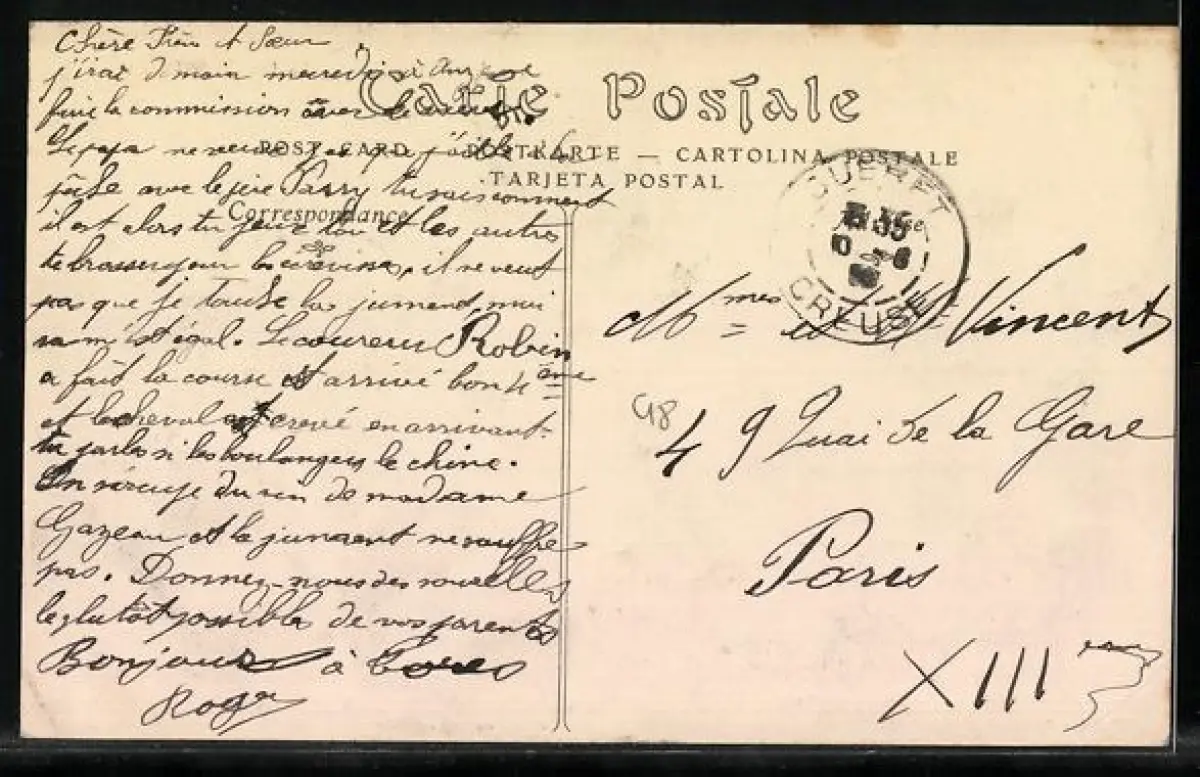 Chère Frère et Sœur
j'irai d main mecredi à
faire la commission avec le
Carte Postale
POST CARD — POSTKARTE — CARTOLINA POSTALE
TARJETA POSTAL
Correspondance
Le papa ne veut pas que j'aille à la
pêche avec le père Parry tu sais comment
il est alors tu peux toi et les autres
te brosser pour les écrevisses, il ne veut
pas que je touche la jument, moi
sa m'est égal. Le coureur Robin
a fait la course et arrivé bon 4ème
et le cheval est crevé en arrivant.
tu parles si les boulangers le chine.
On réuse du vin de madame
Gazeau et la jument ne souffre
pas. Donnez-nous des nouvelles
le plutôt possible de vos parents
Bonjour à Tous
Roger
GUERET
CREUSE
Mmes et M. Vincent
G8
49 Quai de la Gare
Paris
XIII